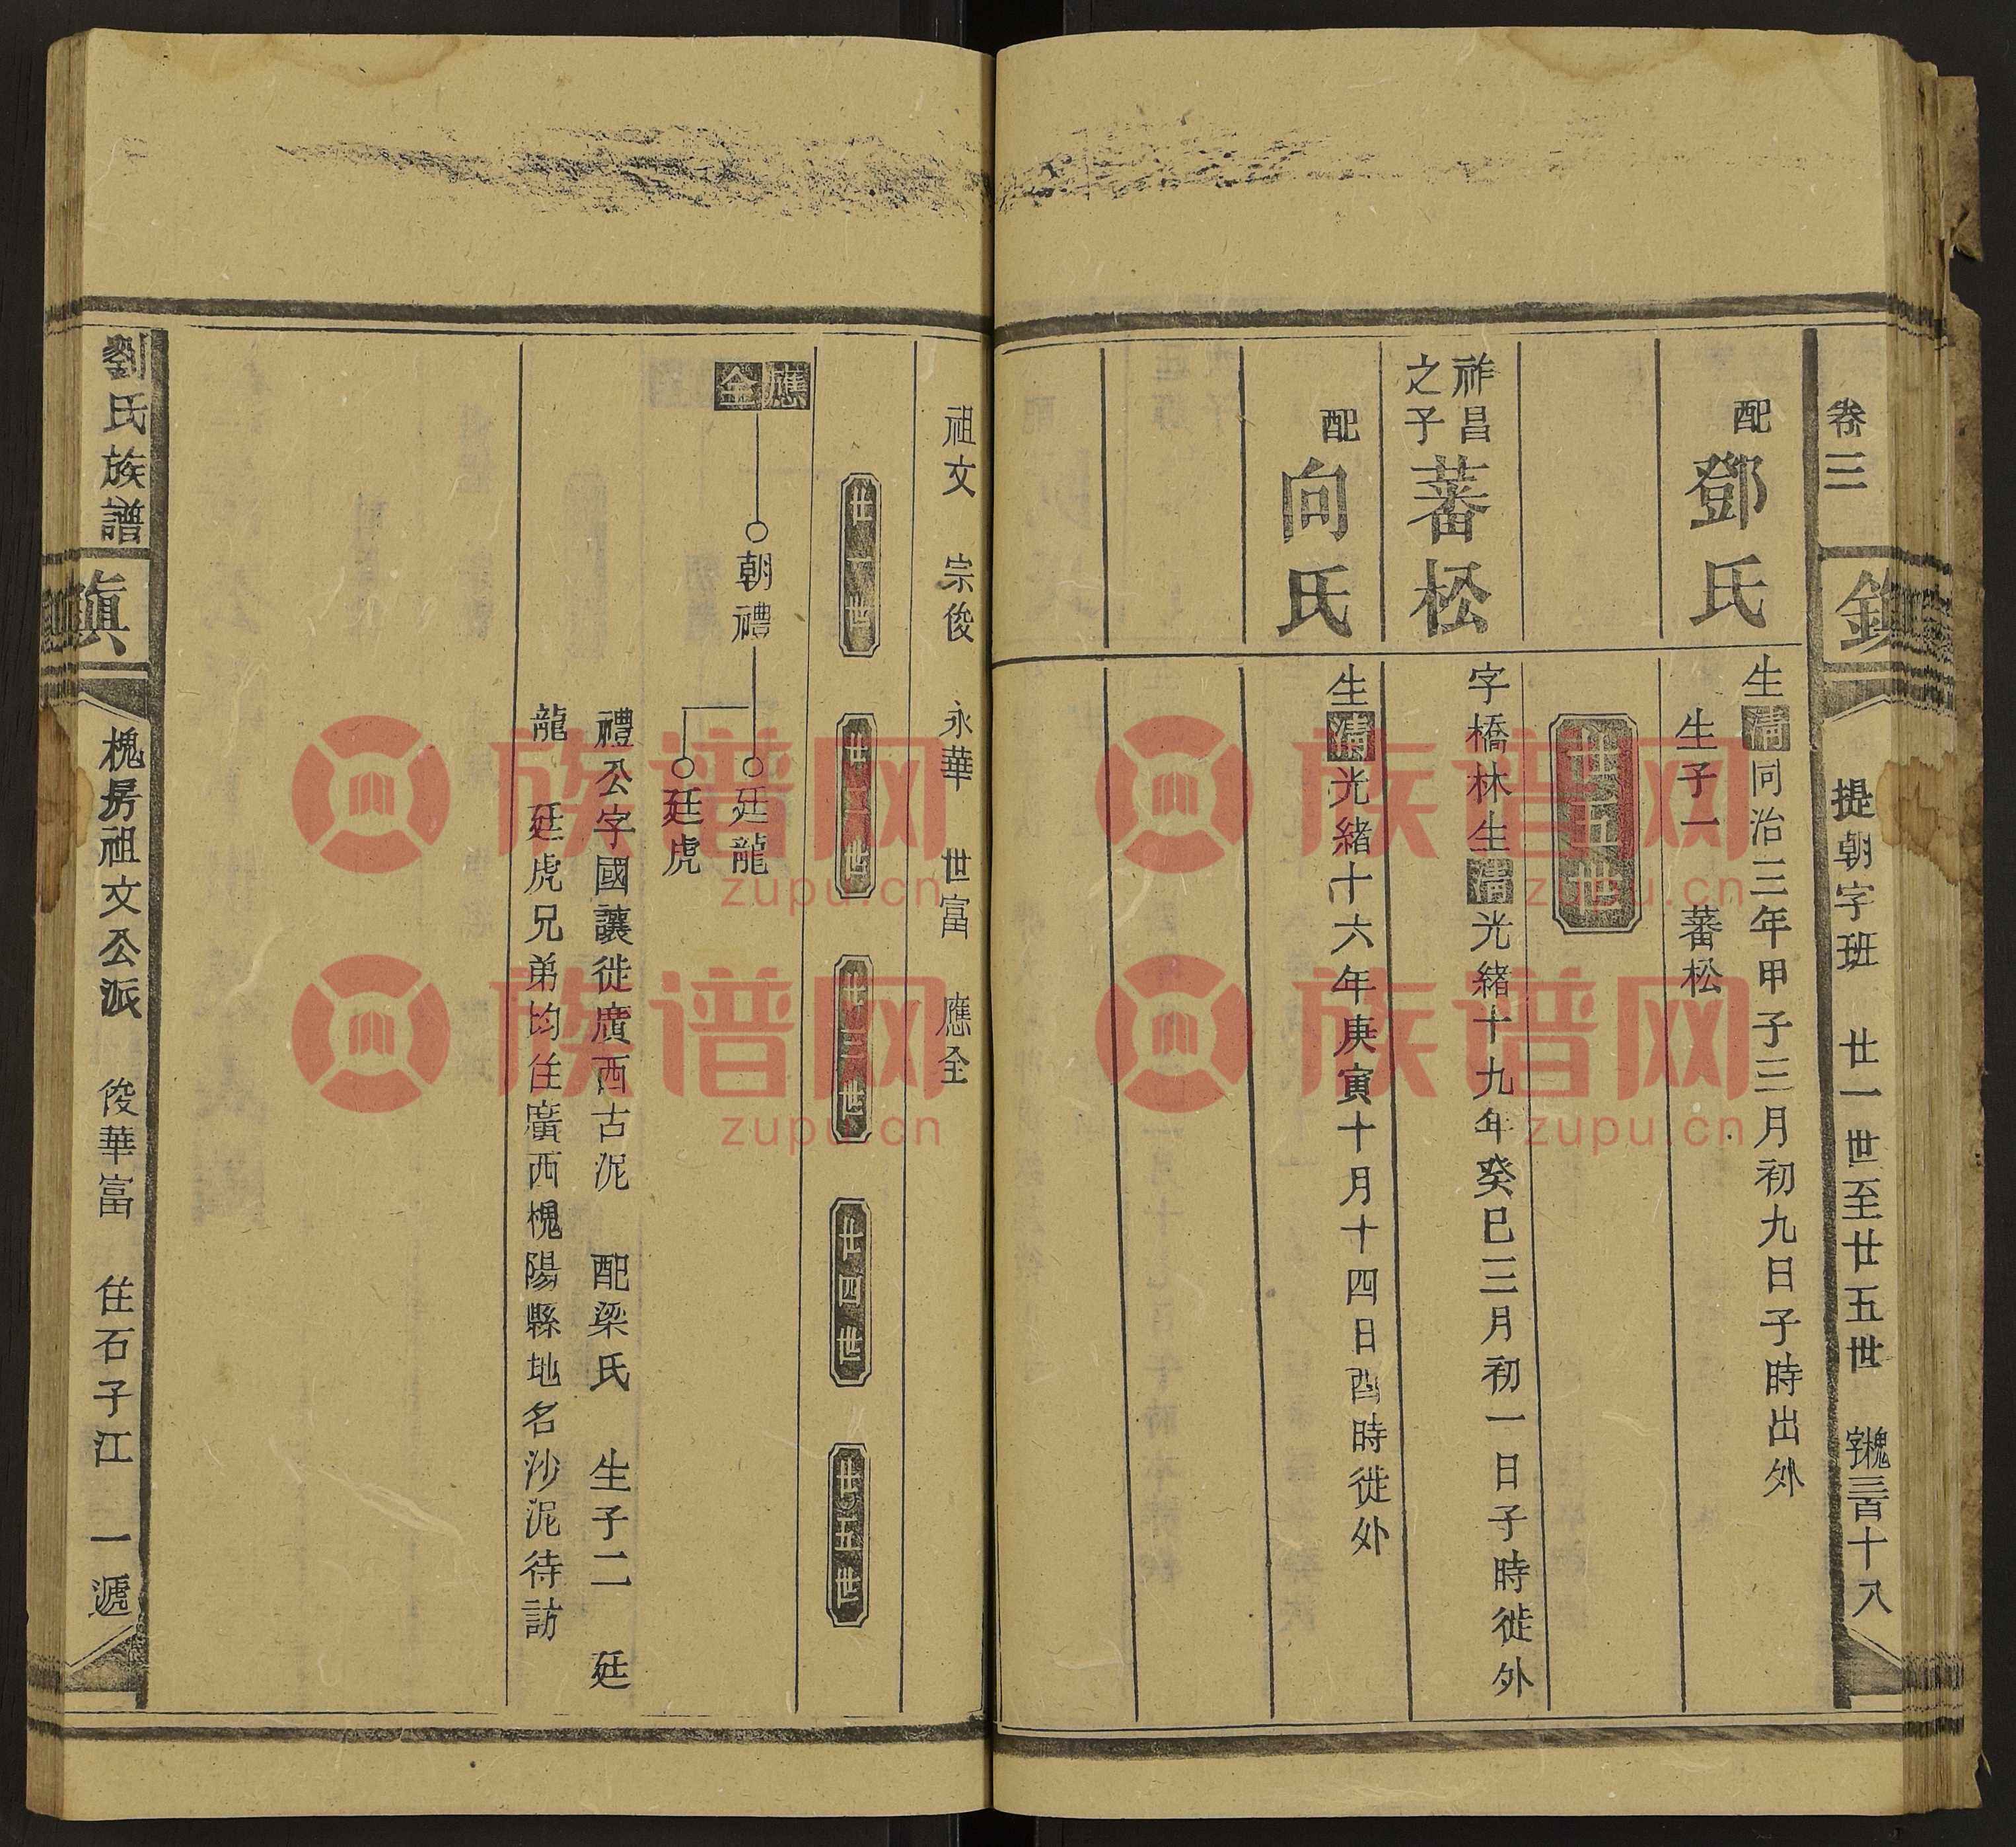 卷三
鎮
提朝字班　廿一世至廿五世　槐字三百十八
配鄧氏
生清同治三年甲子三月初九日子時出外
生子一　蕃松
廿五世
祚昌之子蕃松
字橋林生清光緒十九年癸巳三月初一日子時徙外
配向氏
生清光緒十六年庚寅十月十四日酉時徙外
祖文　宗俊　永華　世富　應全
廿一世　廿二世　廿三世　廿四世　廿五世
應全
朝禮
廷龍
廷虎
禮公字國讓徙廣西古泥　配梁氏　生子二　廷
龍　廷虎兄弟均住廣西槐陽縣地名沙泥待訪
劉氏族譜
槐房祖文公派　俊華富　住石子江　一遞
族谱网
zupu.cn
族谱网
zupu.cn
族谱网
zupu.cn
族谱网
zupu.cn